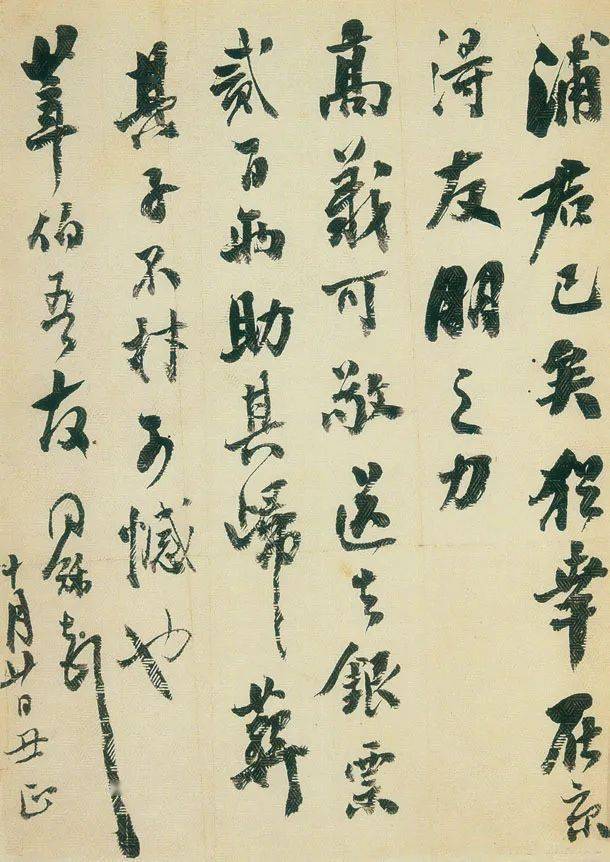 浦君已矣猶幸在京
得友朋之力
高義可敬送去銀票
貳百兩助其歸葬
其子不材可憾也
莘伯吾友 同龢頓
十月廿日丑正